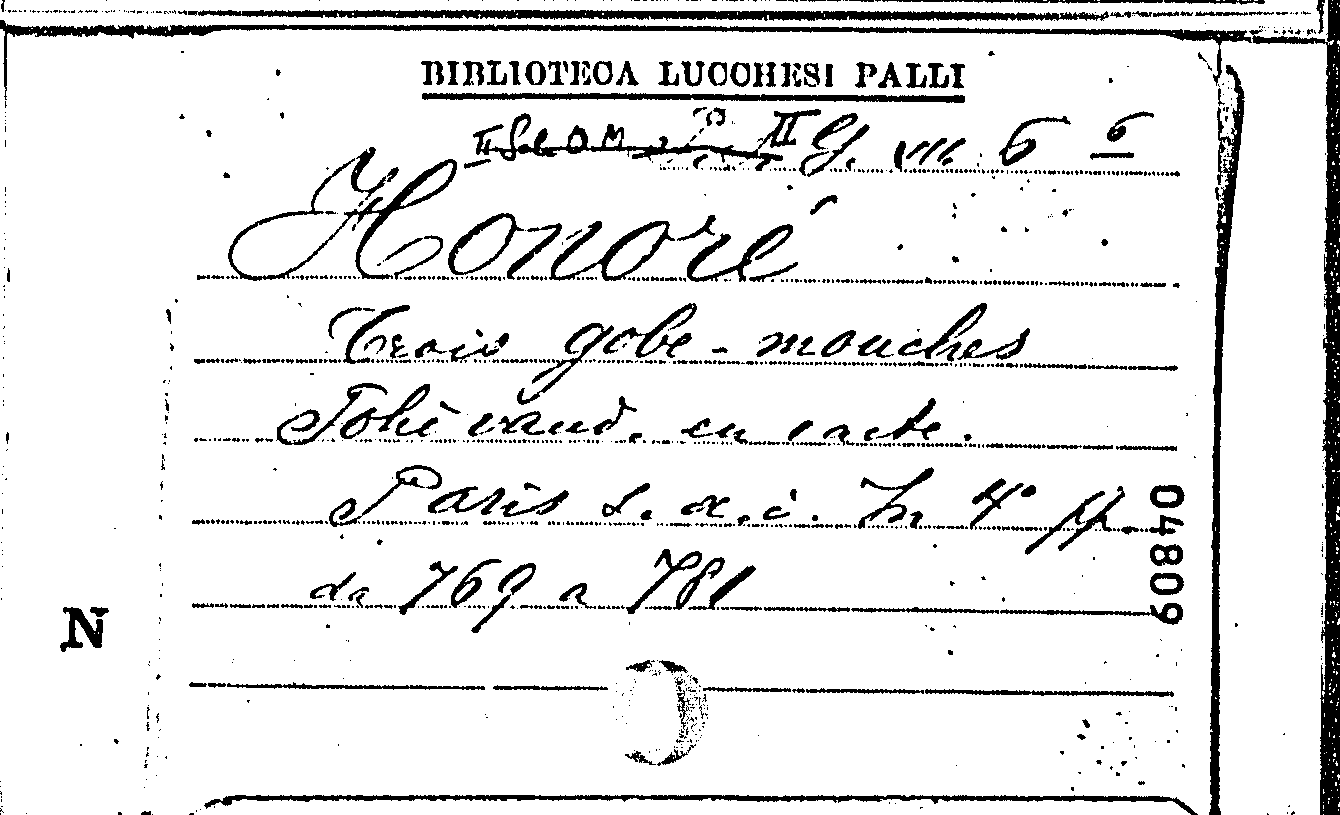 BIBLIOTECA LUCCHESI PALLI
II G. VIII. 6 6
Honoré
Trois gobe-mouches
Folie vaud. en 1 acte.
Paris s. a. i. In 4° pp.
da 769 a 781
04809
N